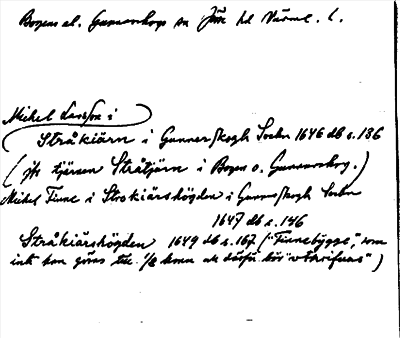 Bogens ol. Gunnarskogs sn Jösse hd Värml. l.
Michel Larsson i
Stråkiärn i Gunnerskogh Sochn 1646 db s. 136
(jfr tjärnen Stråtjärn i Bogen o. Gunnarskog.)
Michel Finne i Strokiärshögden i Gunnerskogh Sochn
1647 db s. 146
Stråkiärshögden 1649 db s. 167 ("Finnebygge", som
inte kan göras till 1/8 hemn och därför bör "utkrifuas")